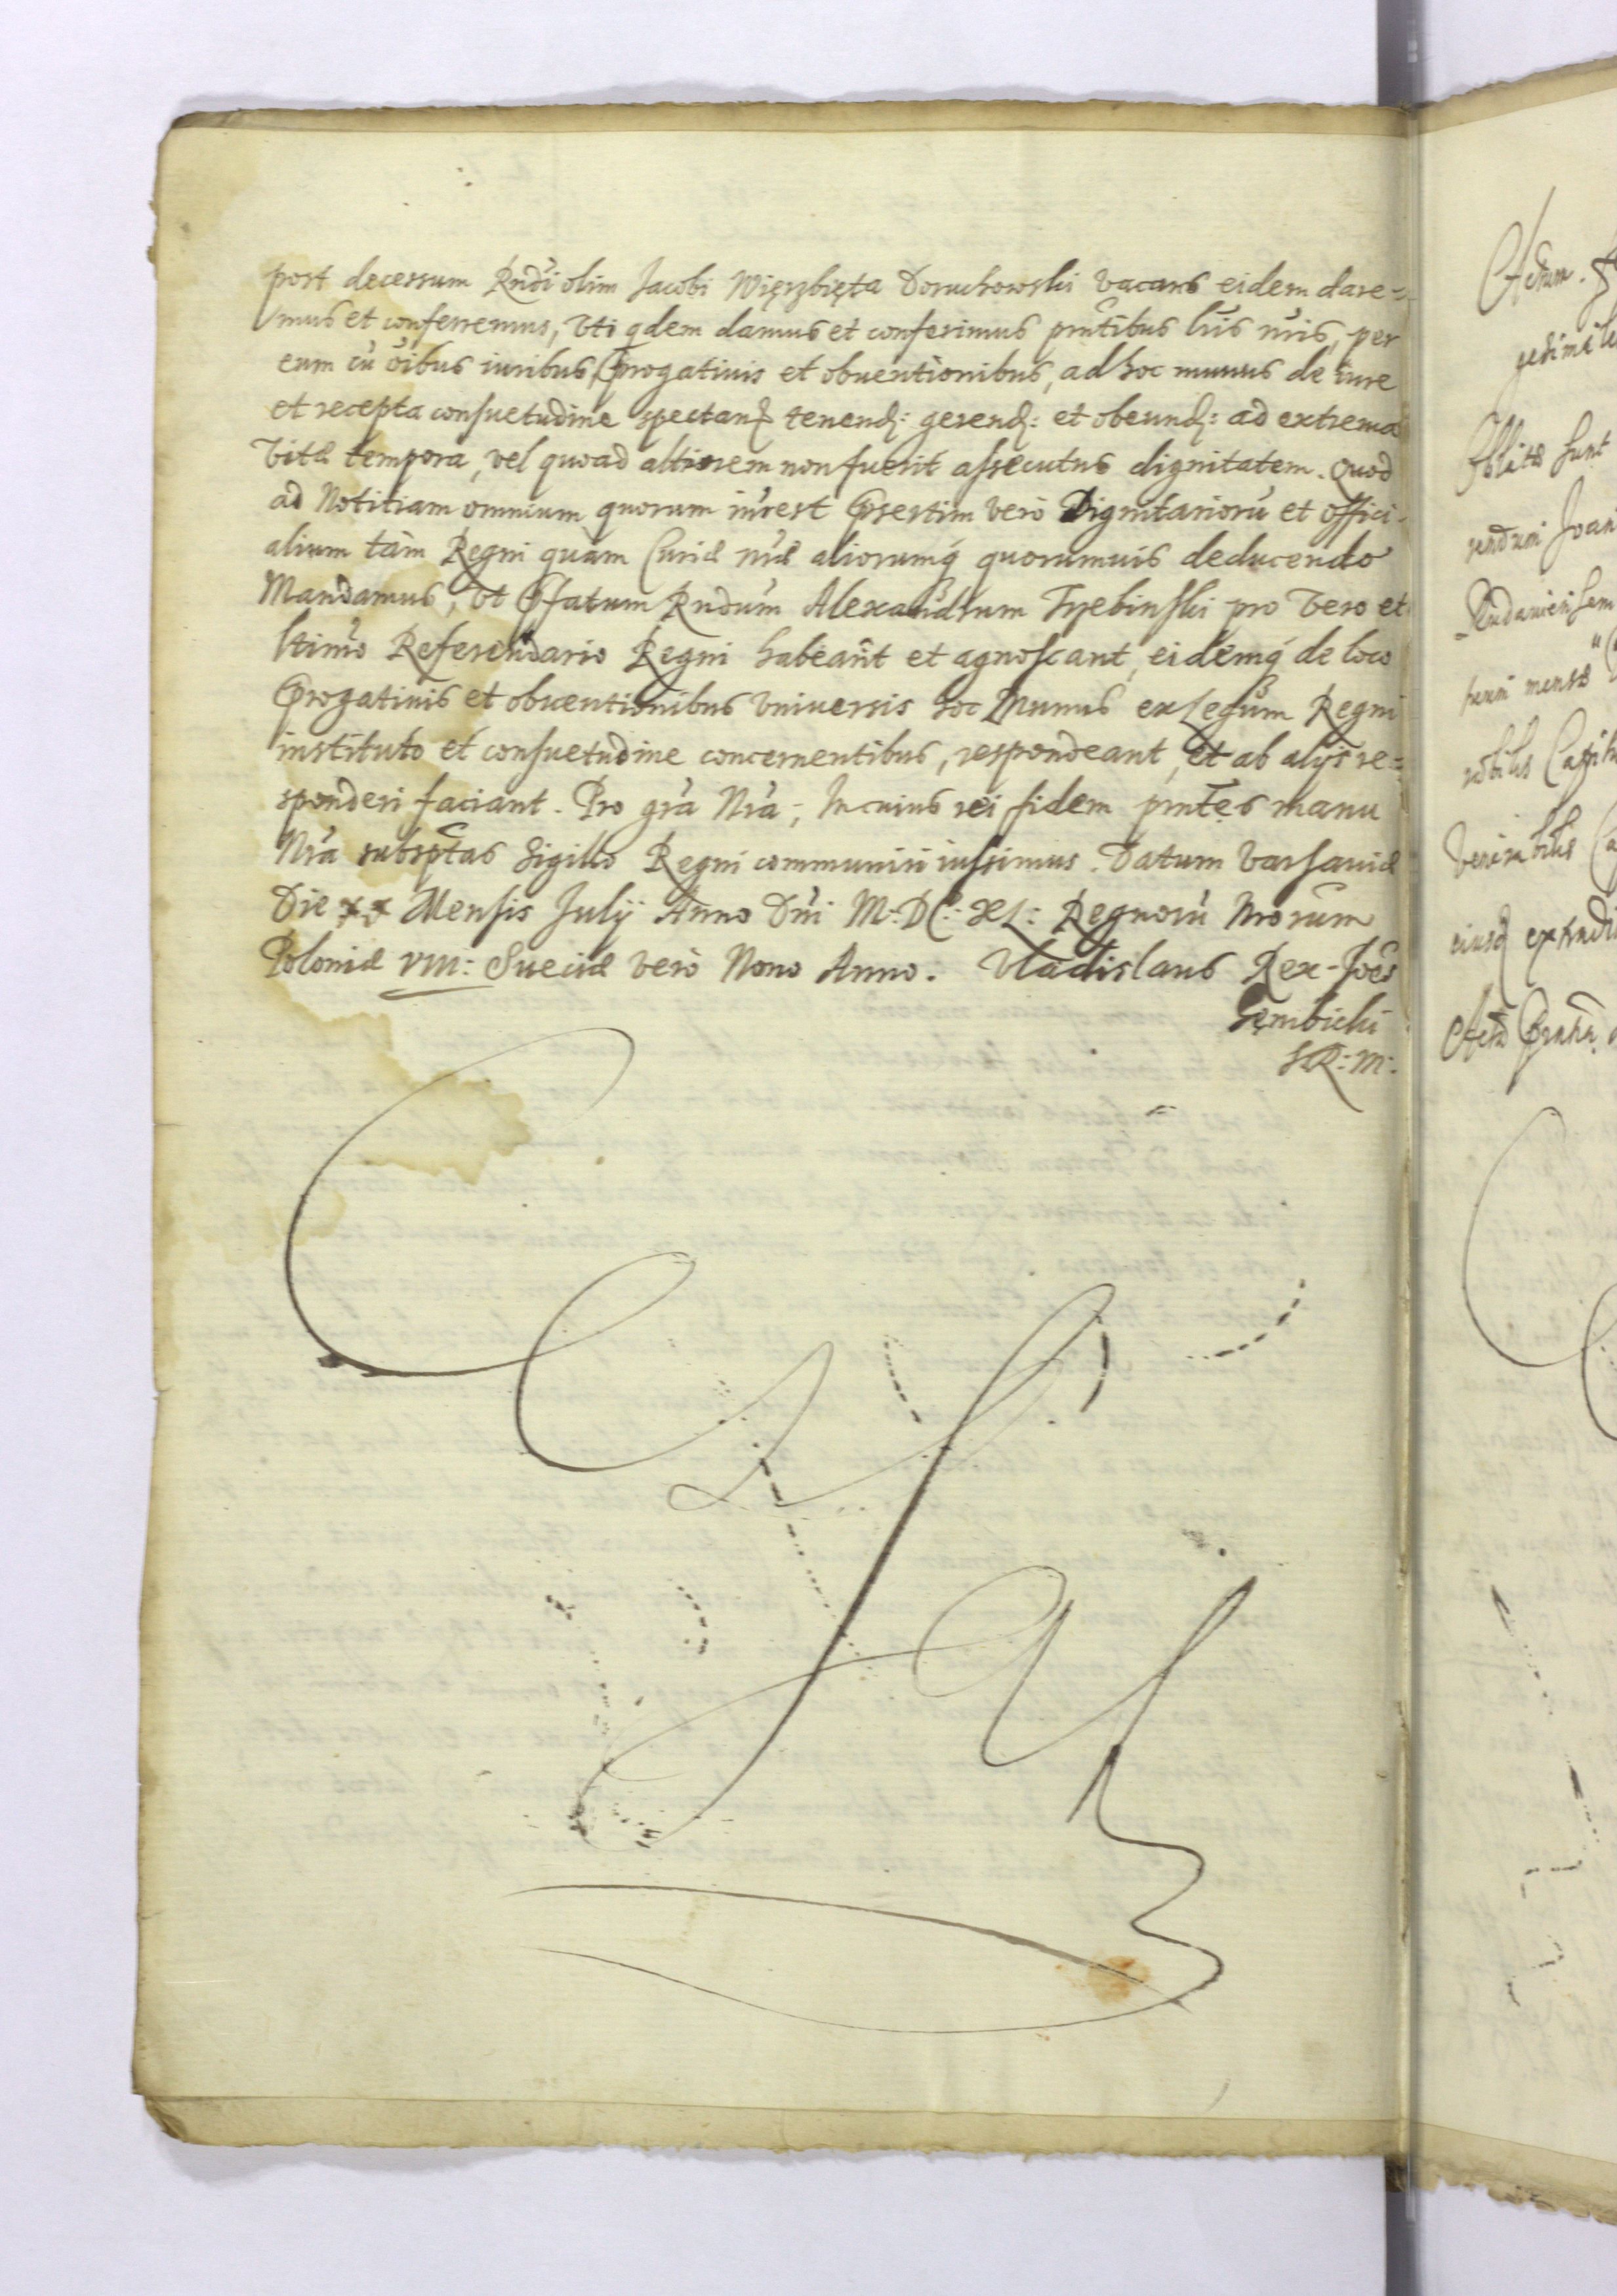 post decessum Rndi olim Jacobi Więrzbięta Doruchowski vacans eidem dare=
mus et conferremus, Vti qdem damus et conferimus pntibus lris nris, per
eum cū oibus iuribus, Prrogatiuis et obuentionibus, ad hoc munus de iure
et recepta consuetudine spectan: tenend: gerend: et obeund: ad extrema
Vitæ tempora, vel quoad altiorem non fuerit assecutus dignitatem. Quod
ad Notitiam omnium quorum inrest Prsertim verò Dignitarioru et offici-
alium tàm Regni quàm Curiæ nræ aliorumq quorumuis deducendo
Mandamus, Vt Prfatum Rndum Alexandrum Trzebinski pro Vero et
ltimo Referendario Regni habeant et agnoscant, eidemq de loco
Prrogatiuis et obuentionibus Vniuersis hoc Munus ex Legum Regni
instituto et consuetudine concernentibus, respondeant, et ab alijs re=
sponderi faciant. Pro gra Nra; In cuius rei fidem pntes manu
Nra subsptas Sigillo Regni communiri iussimus. Datum Varsauiæ
Die xx Mensis Julij Anno Dni M: DC: XL: Regnoru Nrorum
Poloniæ VIII: Sueciæ verò Nono Anno. Vladislaus Rex - Joes
Gembicki
S R: M:
Actum
Oblatæ sunt
Joan
mensis
nobilis Capit
Venerabilis
eiusq extradi